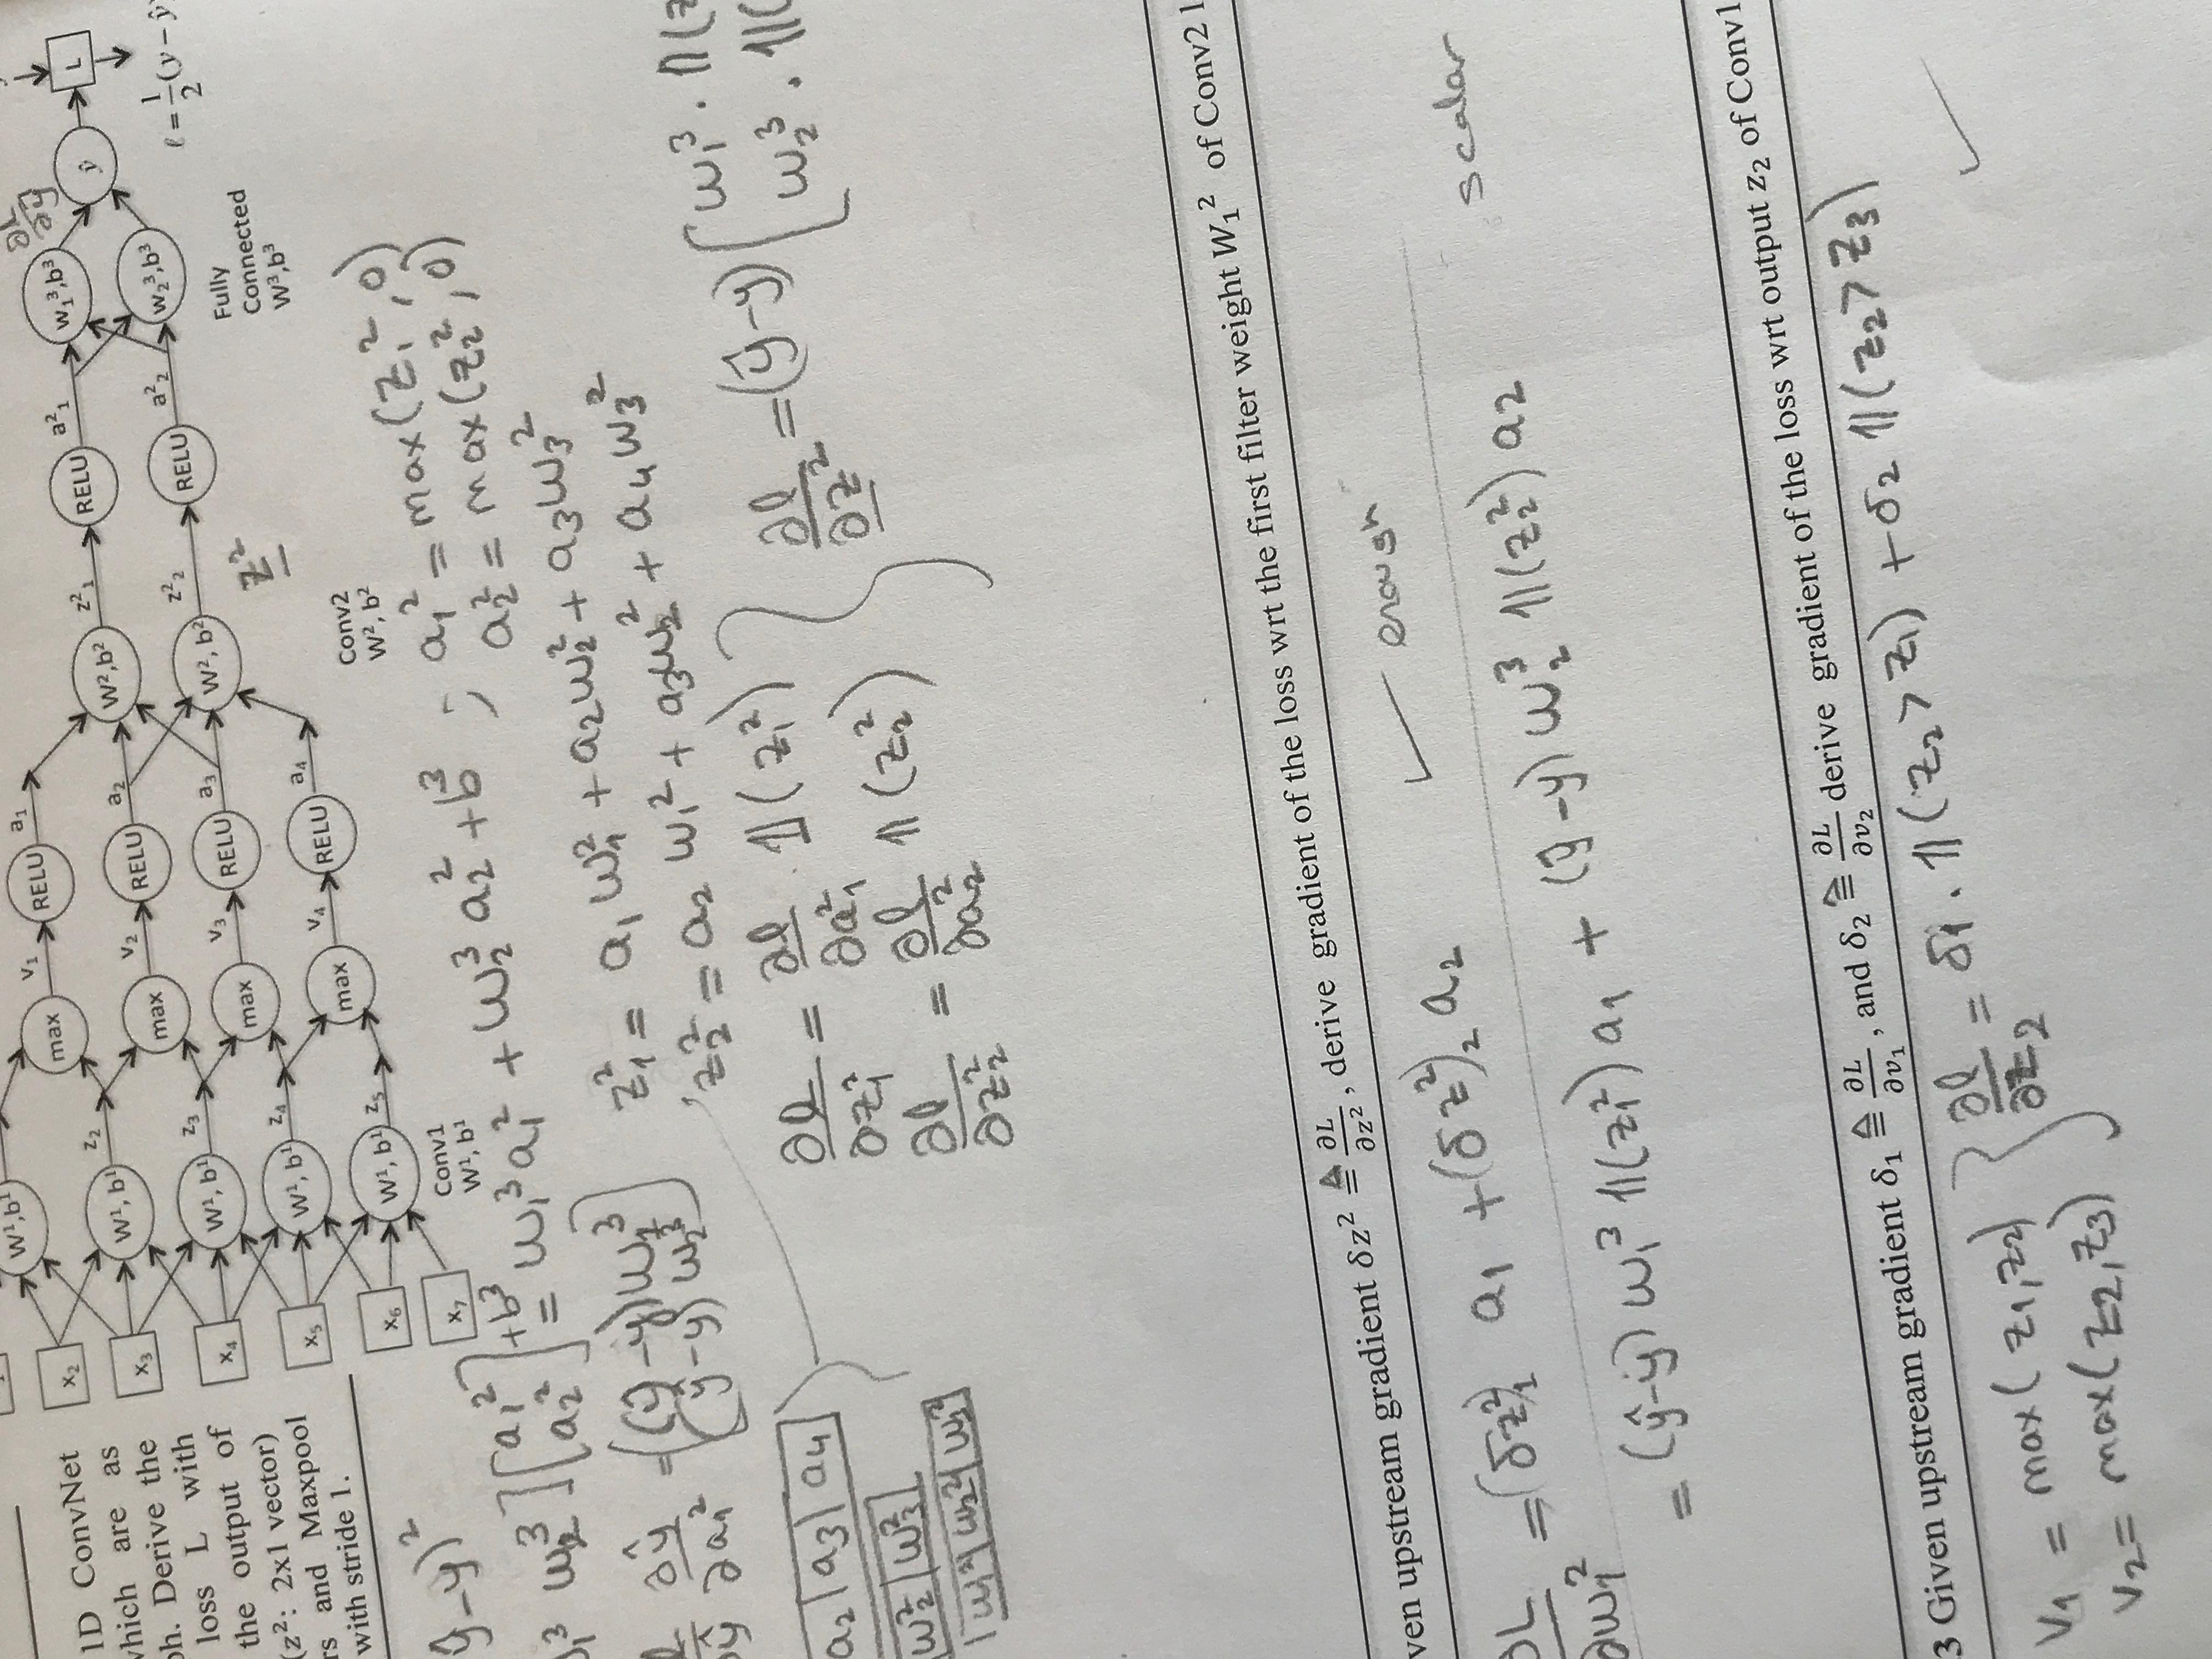 1D ConvNet
which are as
ph. Derive the
loss L with
the output of
(z²: 2x1 vector)
rs and Maxpool
with stride 1.
x₂
x₃
x₄
x₅
x₆
x₇
W¹,b¹
W¹, b¹
W¹, b¹
W¹, b¹
W¹, b¹
Conv1
W¹, b¹
z₂
z₃
z₄
z₅
max
max
max
max
v₁
v₂
v₃
v₄
RELU
RELU
RELU
RELU
a₁
a₂
a₃
a₄
W²,b²
W², b²
Conv2
W², b²
z²₁
z²₂
z²
RELU
RELU
a²₁
a²₂
w₁³,b³
w₂³,b³
Fully
Connected
W³,b³
∂L/∂ŷ
ŷ
L
ℓ = 1/2 (y − ŷ)
ŷ − y)²
w₁³ w₂³] [a₁² a₂²] + b³ = w₁³ a₁² + w₂³ a₂² + b³ ; a₁² = max(z₁², 0)
a₂² = max(z₂², 0)
∂ŷ/∂a₁² = [(ŷ − y) w₁³
(ŷ − y) w₂³]
z₁² = a₁ w₁² + a₂ w₂² + a₃ w₃²
z₂² = a₂ w₁² + a₃ w₂² + a₄ w₃²
a₂ | a₃ | a₄
w₂² | w₃²
w₁² | w₂² | w₃²
∂ℓ/∂z₁² = ∂ℓ/∂a₁² . 𝟙(z₁²)
∂ℓ/∂z₂² = ∂ℓ/∂a₂² 𝟙(z₂²)
∂ℓ/∂z² = (ŷ − y) [w₁³ . 𝟙(z
w₂³ . 𝟙(
ven upstream gradient δz² ≜ ∂L/∂z², derive gradient of the loss wrt the first filter weight W₁² of Conv2 l
✓ enough
scalar
∂L/∂w₁² = (δz²)₁ a₁ + (δz²)₂ a₂
= (ŷ−y) w₁³ 𝟙(z₁²) a₁ + (ŷ−y) w₂³ 𝟙(z₂²) a₂
3 Given upstream gradient δ₁ ≜ ∂L/∂v₁, and δ₂ ≜ ∂L/∂v₂ derive gradient of the loss wrt output z₂ of Conv1
v₁ = max(z₁, z₂)
v₂ = max(z₂, z₃)
∂ℓ/∂z₂ = δ₁ . 𝟙(z₂ > z₁) + δ₂ 𝟙(z₂ > z₃)
✓